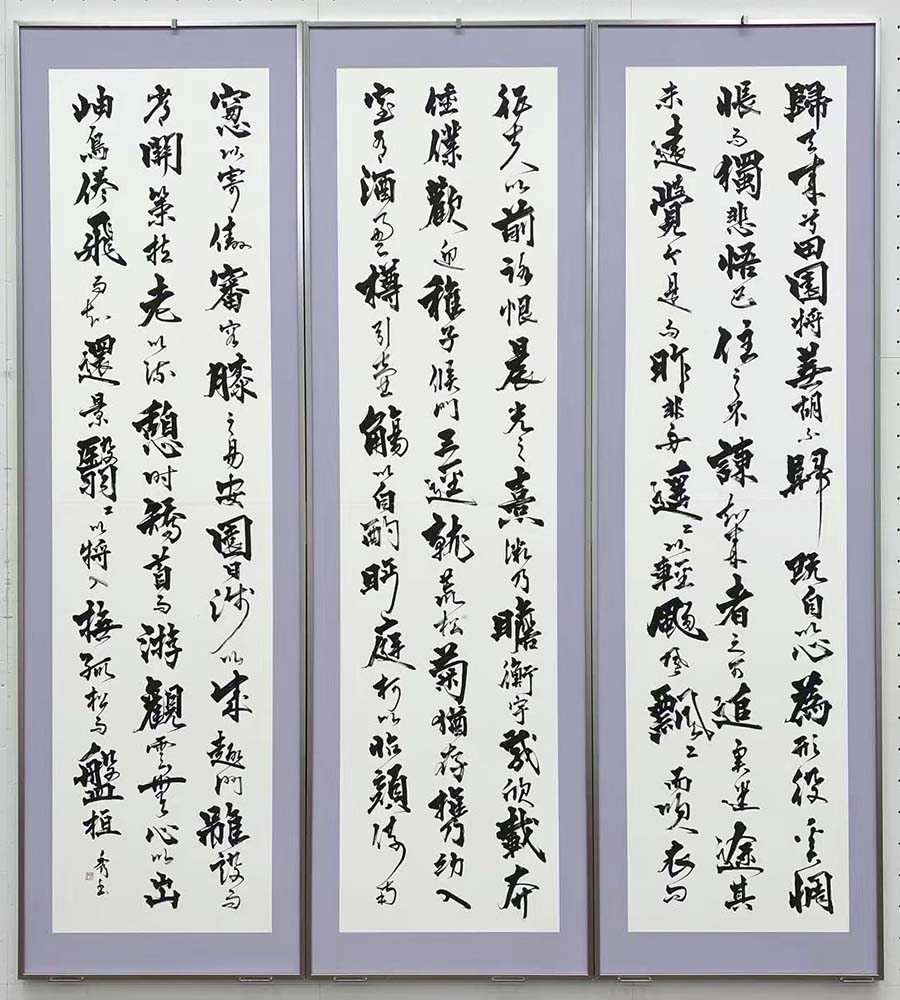 歸去来兮田園将蕪胡不歸既自以心為形役奚惆
悵而獨悲悟已往之不諌知来者之可追実迷途其
未遠覺今是而昨非舟遥〻以輕颺風飄〻而吹衣問
征夫以前路恨晨光之熹微乃瞻衡宇載欣載奔
僮僕歡迎稚子候門三逕就荒松菊猶存攜幼入
室有酒盈樽引壺觴以自酌眄庭柯以怡顔倚南
窓以寄傲審容膝之易安園日渉以成趣門雖設而
常關策扶老以流憩時矯首而游觀雲無心以出
岫鳥倦飛而知還景翳〻以将入撫孤松而盤桓